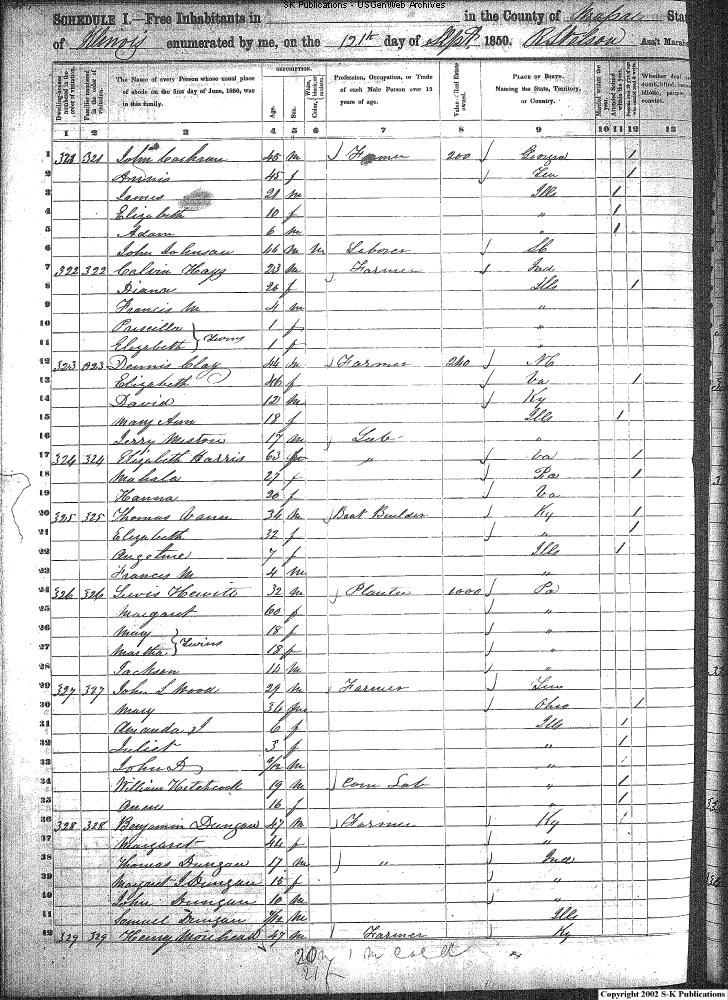 S-K Publications - USGenWeb Archives
SCHEDULE I.—Free Inhabitants in in the County of Sta
of Illinois enumerated by me, on the 19th day of Sept. 1850. Ass't Marsh
DESCRIPTION.
Dwelling-houses numbered in the order of visitation. Families numbered in the order of visitation. The Name of every Person whose usual place of abode on the first day of June, 1850, was in this family. Age. Sex. Color, White, black, or mulatto. Profession, Occupation, or Trade of each Male Person over 15 years of age. Value of Real Estate owned. PLACE OF BIRTH. Naming the State, Territory, or Country. Married within the year. Attended School within the year. Whether deaf dumb, blind, convict.
1 2 3 4 5 6 7 8 9 10 11 12 13
1 321 John 45 m Farmer 200 Georgia 1
2 45 f Ten 1
3 James 21 m Ills 1
4 Elizabeth 10 f " 1
5 Adam 6 m " 1
6 John Johnson 46 m m Laborer
7 322 322 Calvin Hays 23 m Farmer Ind
8 24 f Ills 1
9 Francis M 4 m "
10 Priscilla 1 f "
11 Elizabeth } Twins 1 f "
12 323 Dennis Clay 44 m Farmer 240 NC
13 Elizabeth 46 f Va 1
14 David 12 m Ky
15 Mary Ann 18 f Ills 1
16 Jerry 17 m Lab "
17 324 324 Elizabeth Harris 63 f " Va 1
18 Mahala 27 f 1
19 Hanna 20 f Va
20 325 325 Thomas Vann 34 m Boat Builder Ky 1
21 Elizabeth 32 f " 1
22 Augstine 7 f Ills 1
23 Francis M 4 m "
24 326 326 Lewis Hewitt 32 m Planter 1000 Pa
25 Margaret 60 f "
26 Mary 18 f "
27 Martha } Twins 18 f "
28 Jackson 14 m "
29 327 327 John L Wood 29 m Farmer Ten
30 Mary 34 Ohio 1
31 Amanda J 6 f Ills 1
32 Juliet 3 f " 1
33 John D m "
34 William Hitchcock 19 m Com Lab " 1
35 16 f " 1
36 328 328 Benjamin Dungan 47 m Farmer Ky
37 Margaret 44 f "
38 Thomas Dungan 17 m " Ind
39 Margaret J Dungan 15 f "
40 John Dungan 10 m "
41 Samuel Dungan m Ills
42 329 329 Henry Morehead 47 m Farmer Ky
20 m 1 m col'd
21 f
Copyright 2002 S-K Publications